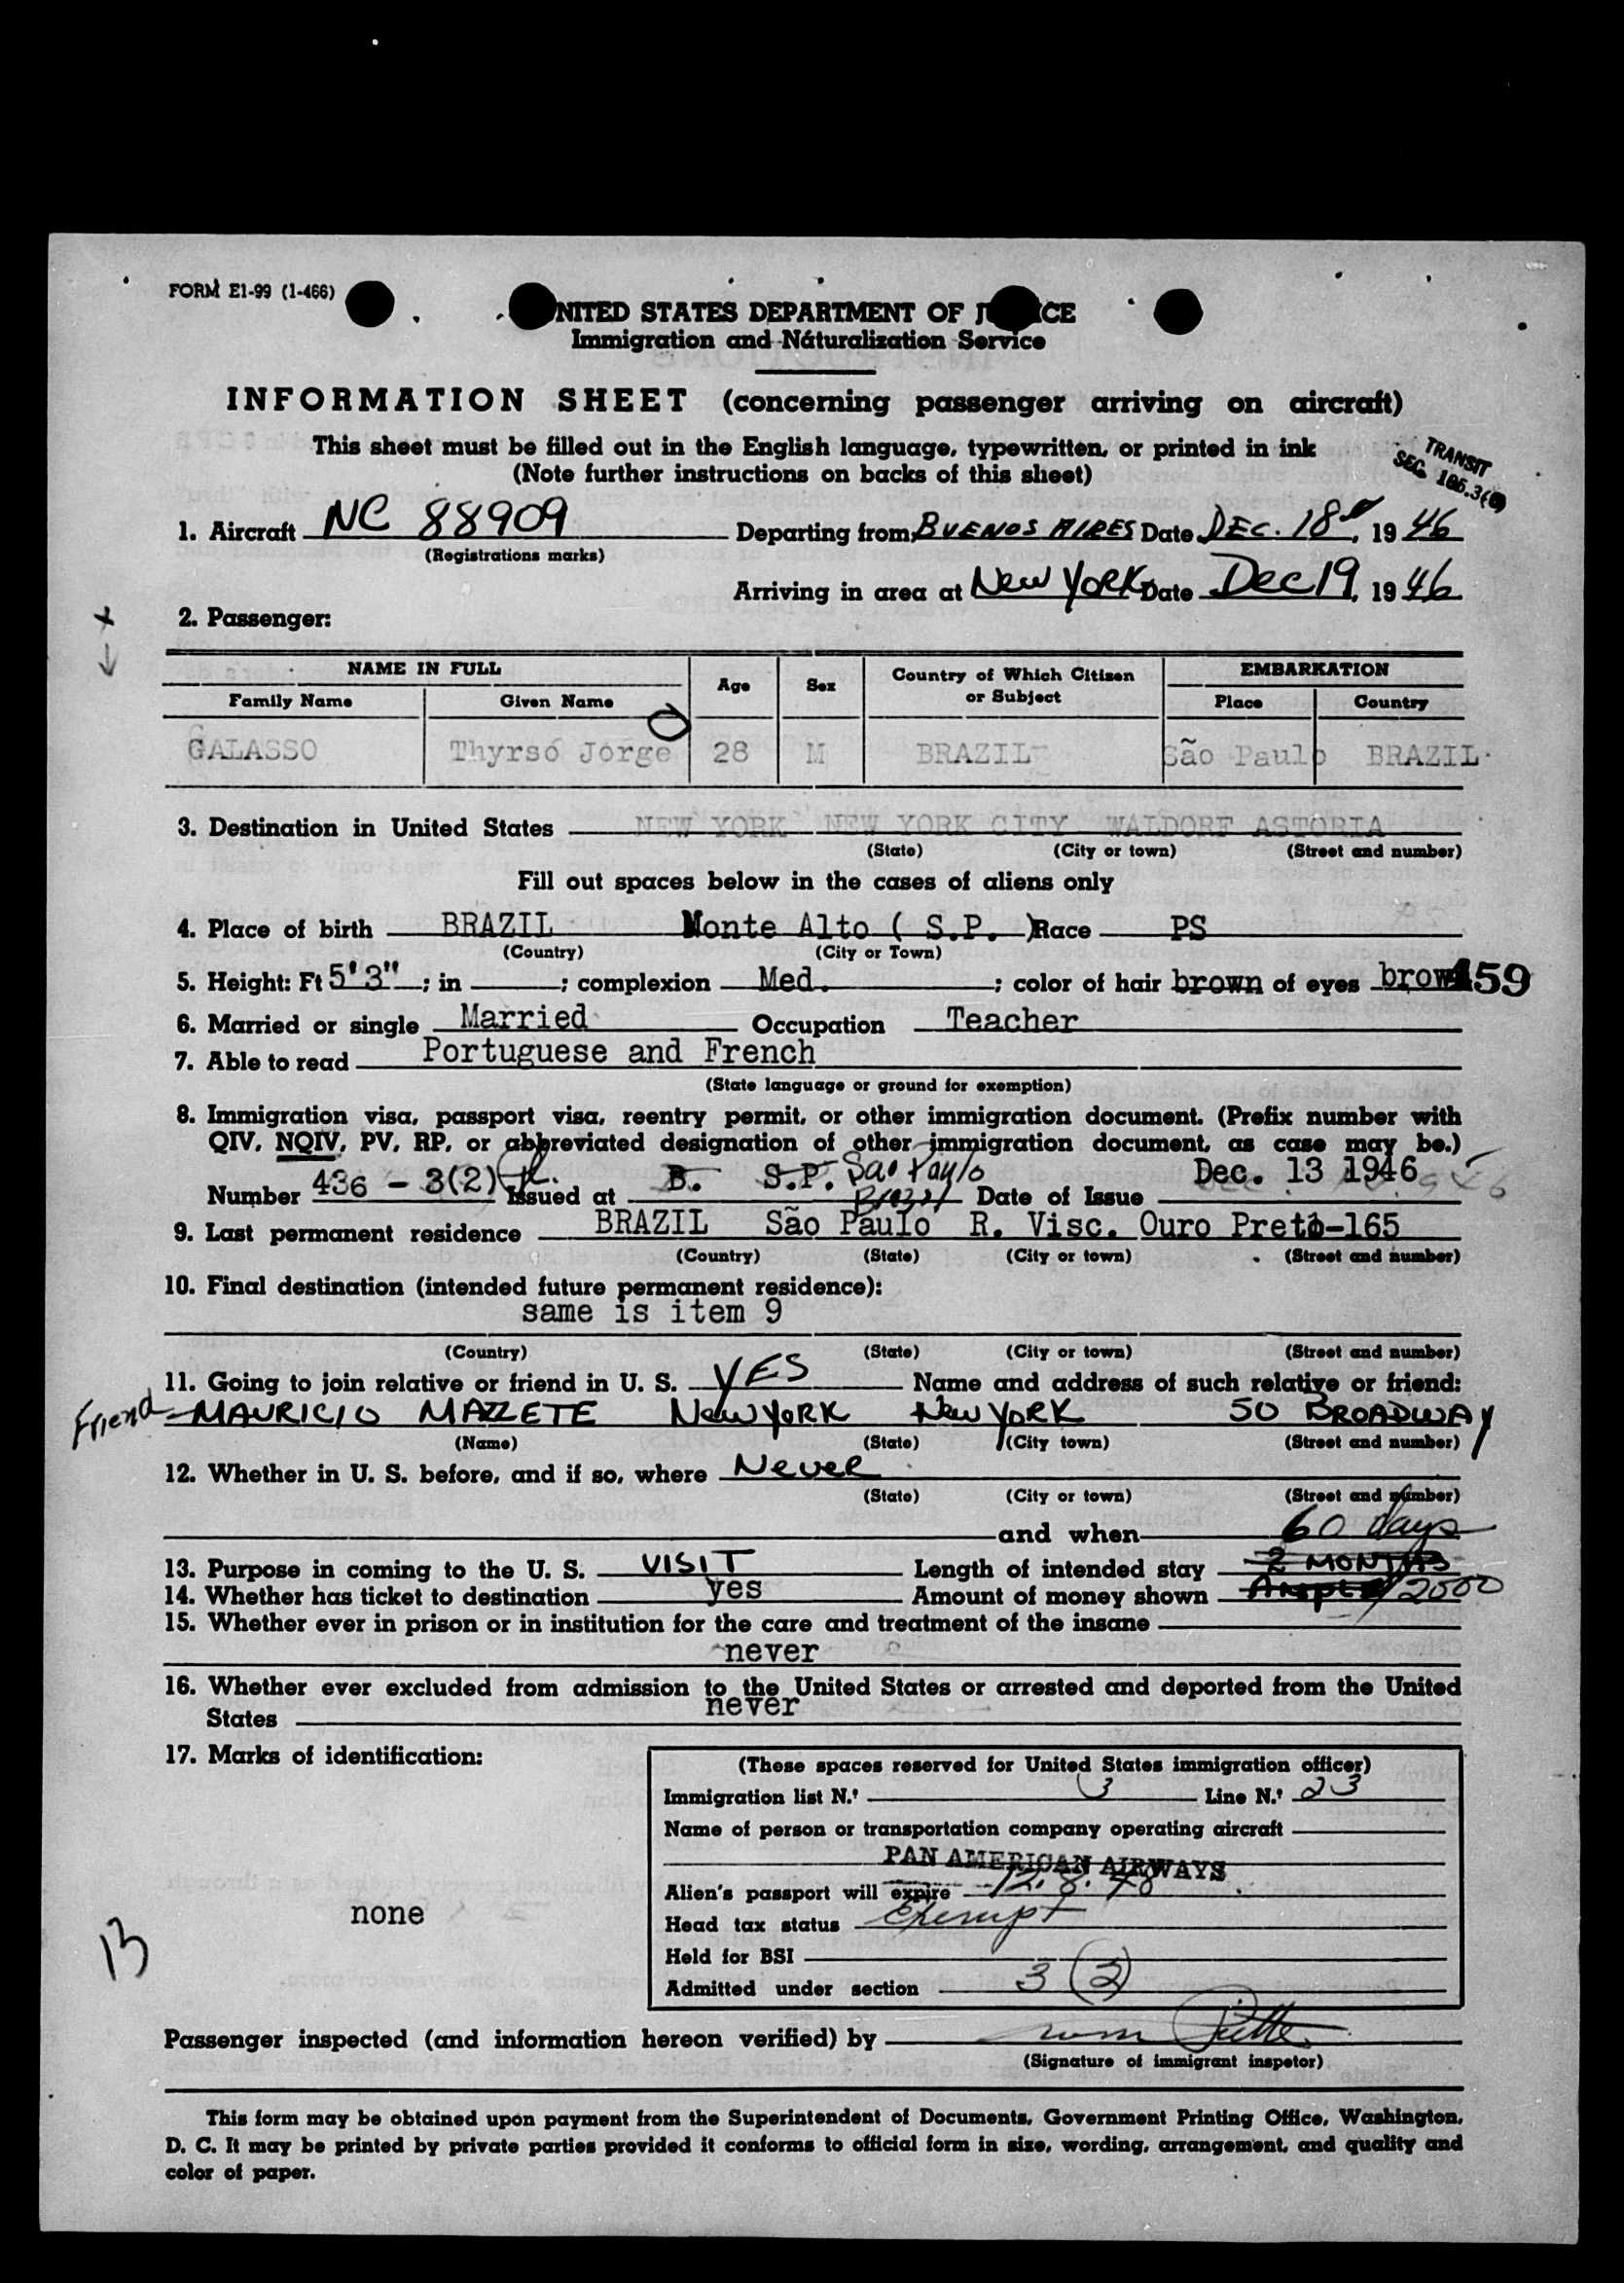 FORM E1-99 (1-466)
NITED STATES DEPARTMENT OF J CE
Immigration and Naturalization Service
INFORMATION SHEET (concerning passenger arriving on aircraft)
This sheet must be filled out in the English language, typewritten, or printed in ink
(Note further instructions on backs of this sheet)
TRANSIT
SEC.
1. Aircraft NC 88909 Departing from BUENOS AIRES Date DEC. 18 , 19 46
(Registrations marks)
Arriving in area at New YORK Date Dec 19, 19 46
2. Passenger:
NAME IN FULL Age Sex Country of Which Citizen or Subject EMBARKATION
Family Name Given Name Place Country
GALASSO Thyrso Jorge 28 M BRAZIL São Paulo BRAZIL
3. Destination in United States NEW YORK NEW YORK CITY WALDORF ASTORIA
(State) (City or town) (Street and number)
Fill out spaces below in the cases of aliens only
4. Place of birth BRAZIL Monte Alto ( S.P. ) Race PS
(Country) (City or Town)
5. Height: Ft 5'3" ; in ; complexion Med. ; color of hair brown of eyes brow 459
6. Married or single Married Occupation Teacher
7. Able to read Portuguese and French
(State language or ground for exemption)
8. Immigration visa, passport visa, reentry permit, or other immigration document. (Prefix number with
QIV, NQIV, PV, RP, or abbreviated designation of other immigration document, as case may be.)
Number 436 - 3(2) Issued at B. S.P. Sao Paulo Brazil Date of Issue Dec. 13 1946
9. Last permanent residence BRAZIL São Paulo R. Visc. Ouro Preto-165
(Country) (State) (City or town) (Street and number)
10. Final destination (intended future permanent residence):
same is item 9
(Country) (State) (City or town) (Street and number)
11. Going to join relative or friend in U. S. YES Name and address of such relative or friend:
Friend MAURICIO MAZZETE New YORK New YORK 50 BROADWAY
(Name) (State) (City town) (Street and number)
12. Whether in U. S. before, and if so, where Never
(State) (City or town) (Street and number)
and when 60 days
13. Purpose in coming to the U. S. VISIT Length of intended stay 2 MONTHS
14. Whether has ticket to destination yes Amount of money shown AMPLE 2000
15. Whether ever in prison or in institution for the care and treatment of the insane
never
16. Whether ever excluded from admission to the United States or arrested and deported from the United
States never
17. Marks of identification:
none
13
(These spaces reserved for United States immigration officer)
Immigration list N.º 3 Line N.º 23
Name of person or transportation company operating aircraft
PAN AMERICAN AIRWAYS
Alien's passport will expire 12.8.48
Head tax status Exempt
Held for BSI
Admitted under section 3 (2)
Passenger inspected (and information hereon verified) by
(Signature of immigrant inspetor)
This form may be obtained upon payment from the Superintendent of Documents, Government Printing Office, Washington,
D. C. It may be printed by private parties provided it conforms to official form in size, wording, arrangement, and quality and
color of paper.